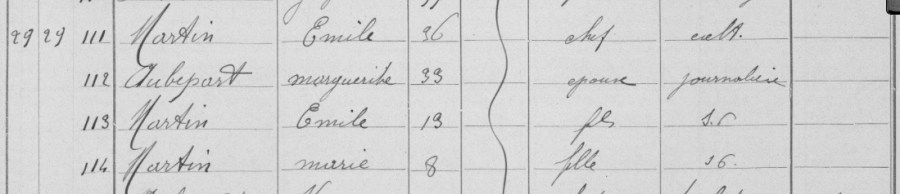 29 29 111 Martin Emile 36 chef cult.
112 Aubepart marguerite 33 épouse journalière
113 Martin Emile 13 fils s.p
114 Martin marie 8 fille sp.